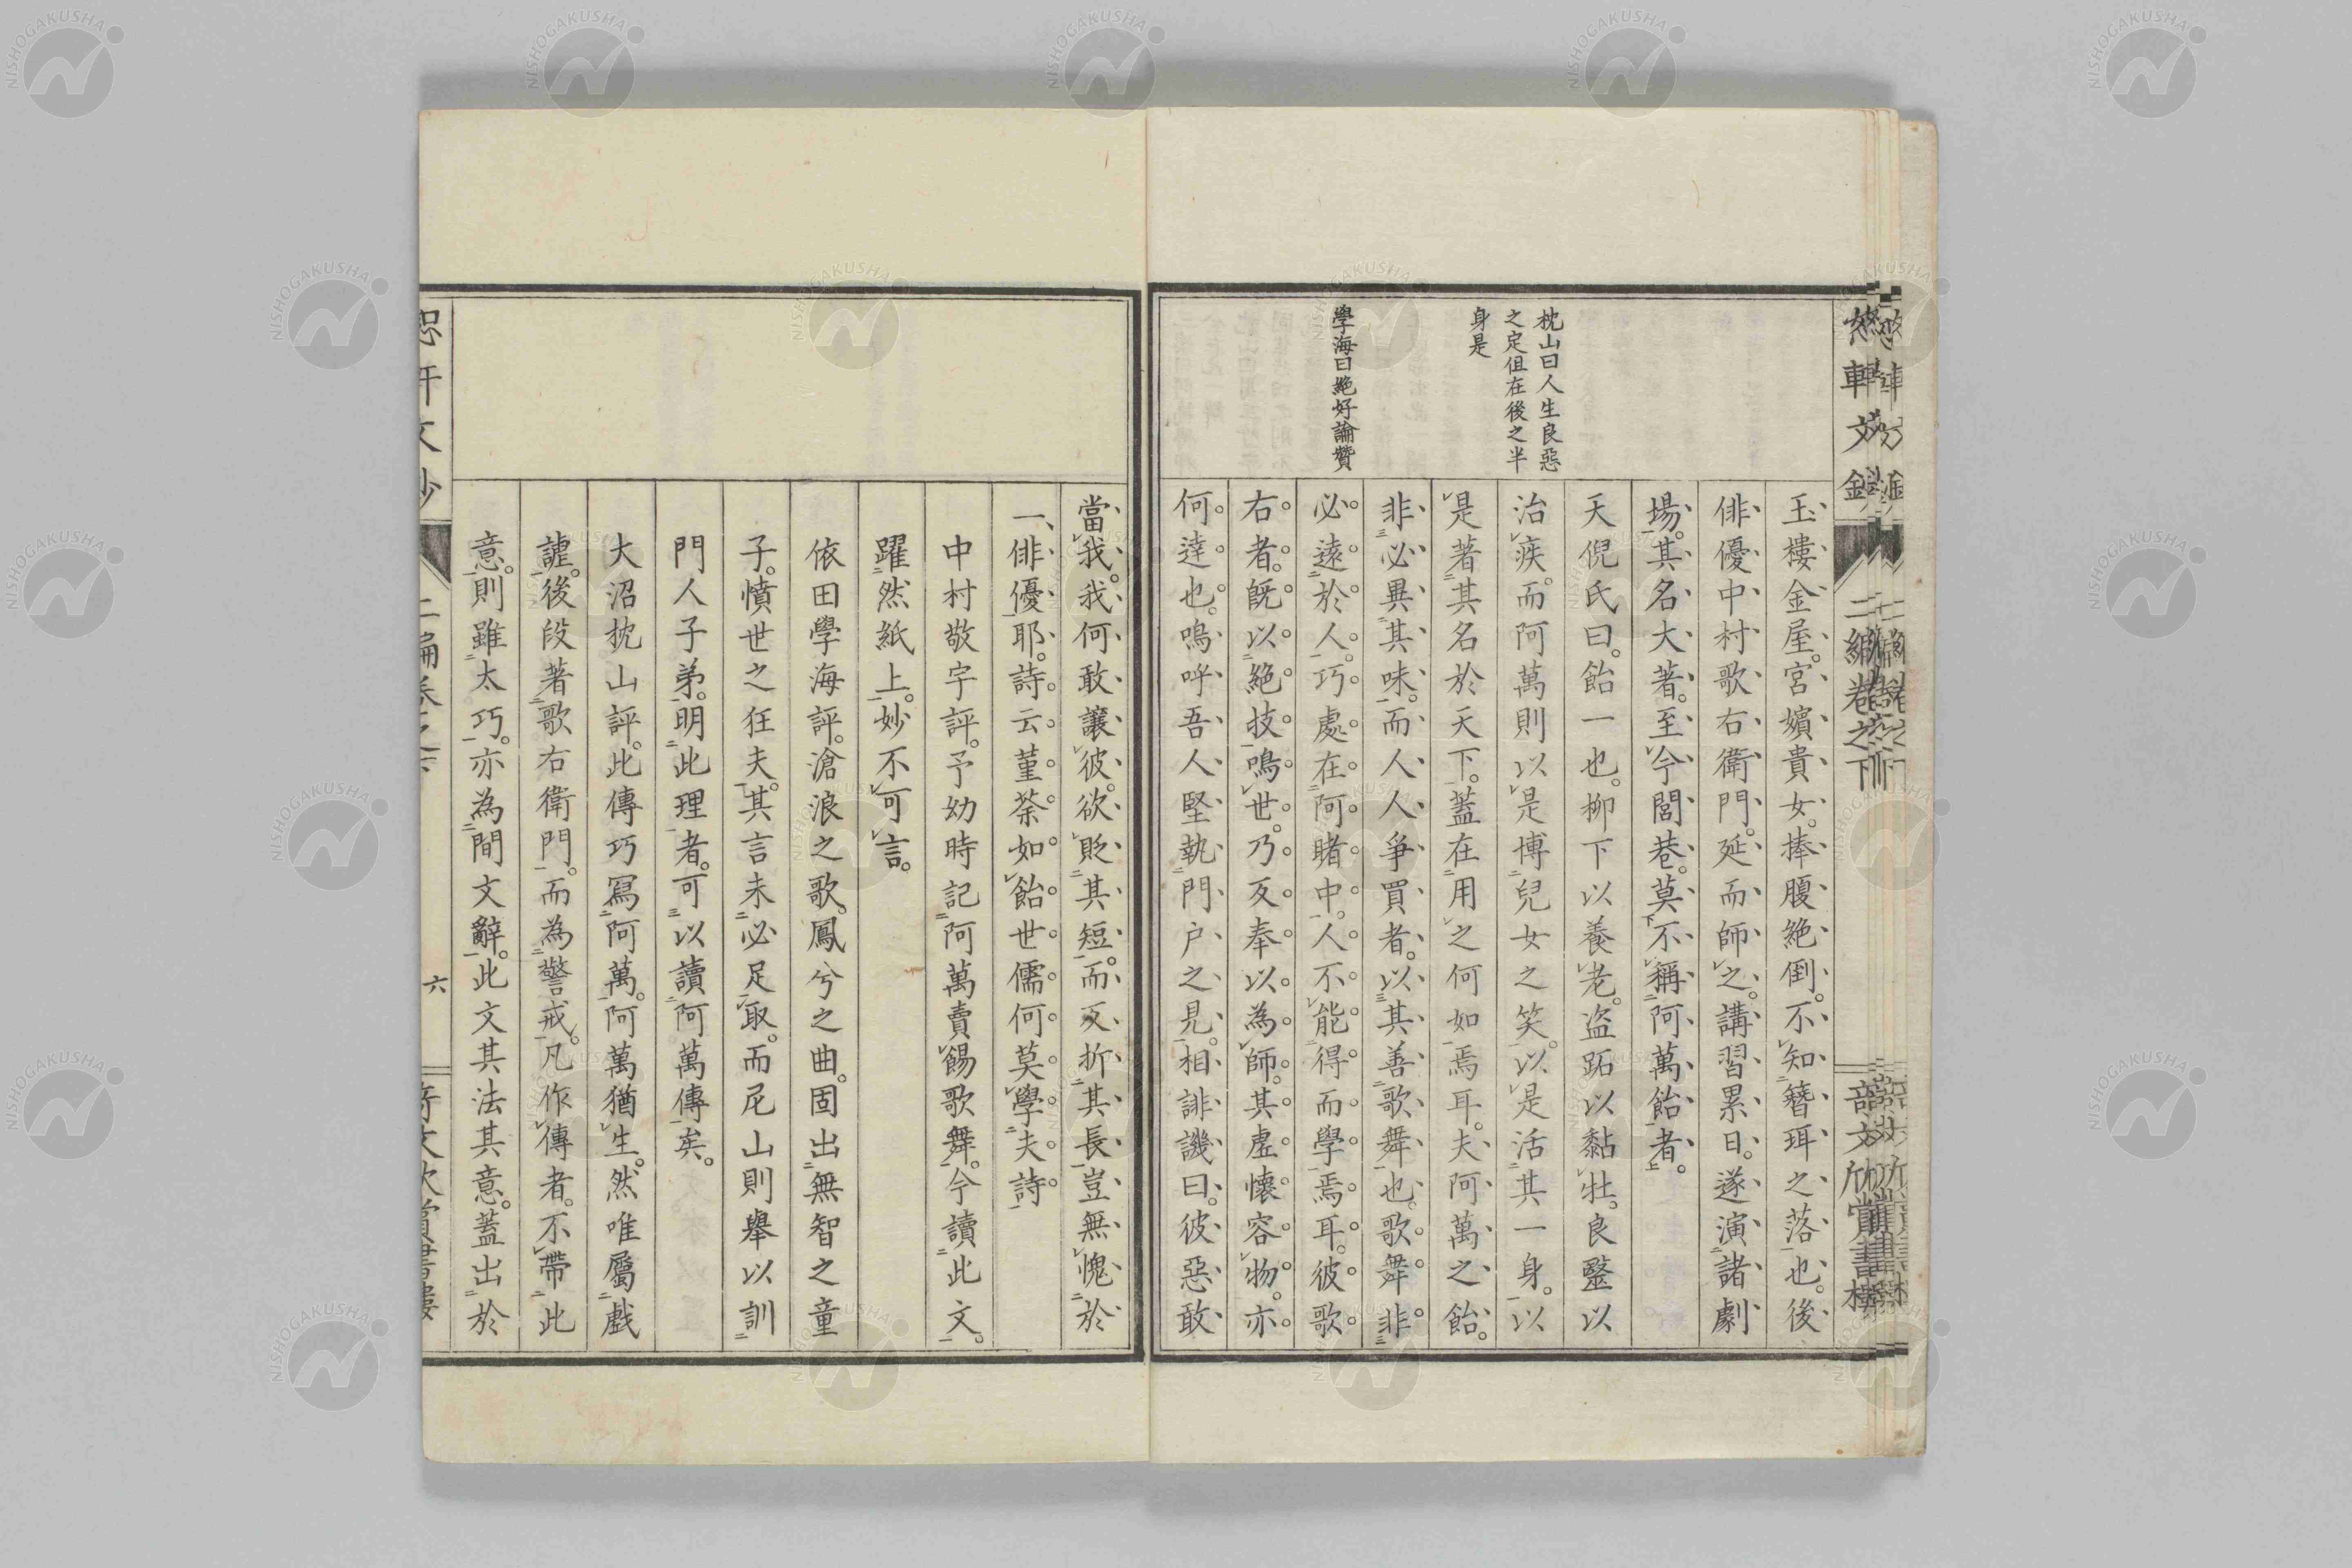 玉樓金屋。宮嬪貴女。捧腹絶倒。不知簪珥之落也。後
俳優中村歌右衛門。延而師之。講習累日。遂演諸劇
場。其名大著。至今閭巷。莫不稱阿萬飴者。
天倪氏曰。飴一也。柳下以養老。盜跖以黏牡。良醫以
治疾。而阿萬則以是博兒女之笑。以是活其一身。以
是著其名於天下。蓋在用之何如焉耳。夫阿萬之飴。
非必異其味。而人人爭買者。以其善歌舞也。歌舞非
必遠於人。巧處在阿睹中。人不能得而學焉耳。彼歌
右者。既以絶技鳴世。乃反奉以為師。其虛懷容物。亦
何達也。嗚呼吾人堅執門户之見。相誹譏曰。彼惡敢
枕山曰人生良惡
之定但在後之半
身是
學海曰絶好論贊
當我。我何敢讓彼。欲貶其短。而反折其長。豈無愧於
一俳優耶。詩云。菫荼如飴。世儒何莫學夫詩
中村敬宇評。予幼時記阿萬賣餳歌舞。今讀此文。
躍然紙上。妙不可言。
依田學海評。滄浪之歌。鳳兮之曲。固出無智之童
子。憤世之狂夫。其言未必足取。而尼山則舉以訓
門人子弟。明此理者。可以讀阿萬傳矣。
大沼枕山評。此傳巧寫阿萬。阿萬猶生。然唯屬戲
謔。後段著歌右衛門。而為警戒。凡作傳者。不帶此
意。則雖太巧。亦為間文辭。此文其法其意。蓋出於
二編卷之下
六
奇文欣賞書樓
NISHOGAKUSHA